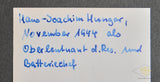 Hans-Joachim Hunger,
November 1944 als
Oberleutnant d. Res. und
Batteriechef